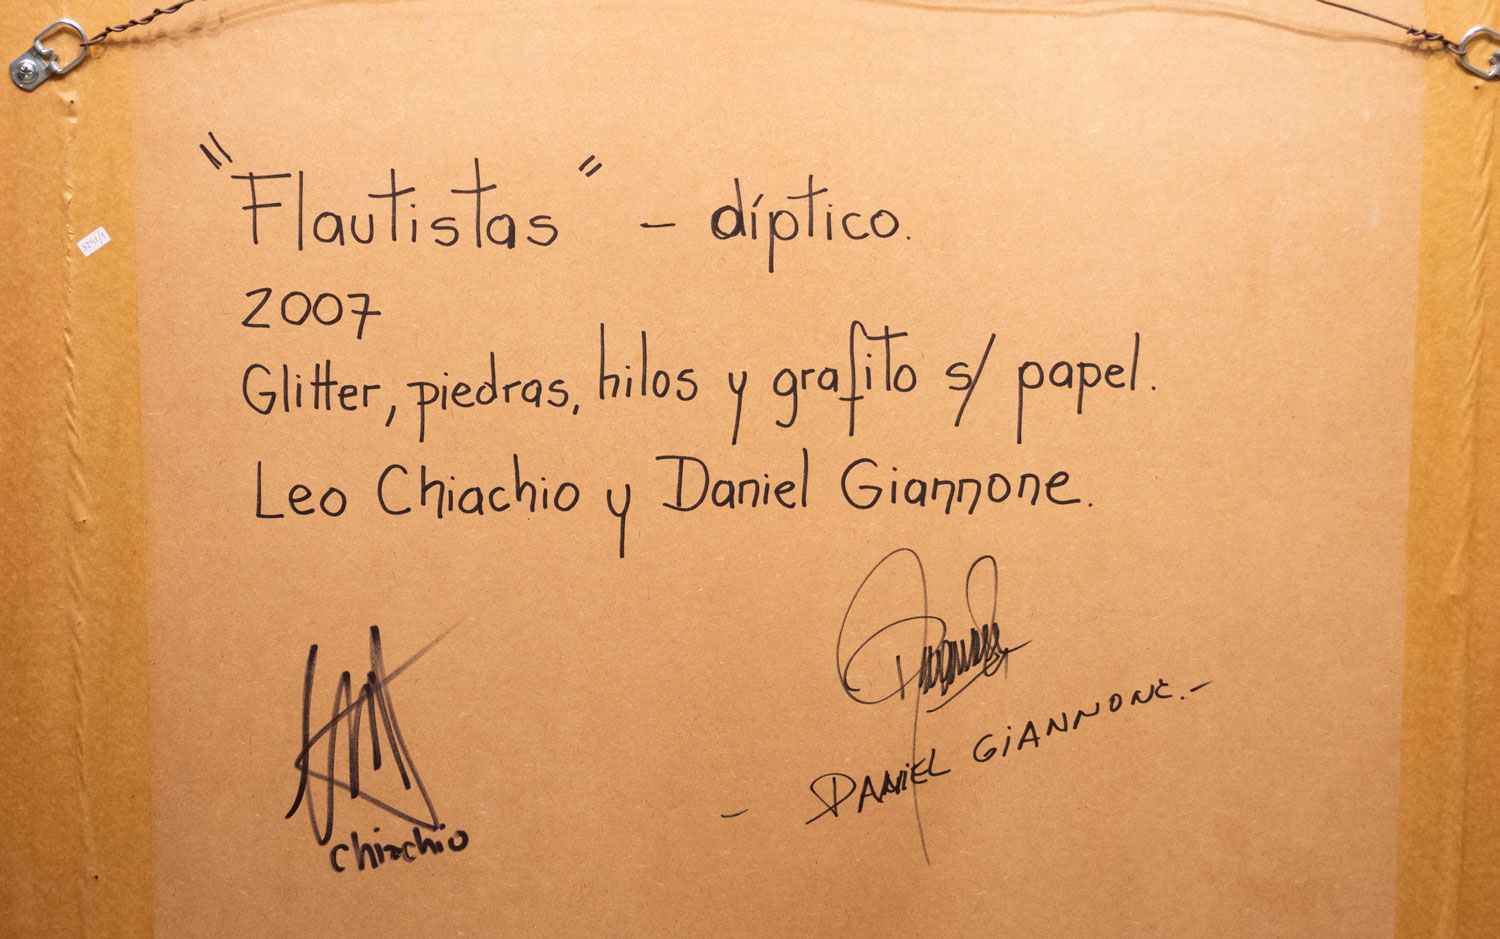 "Flautistas" - díptico.
2007
Glitter, piedras, hilos y grafito s/ papel.
Leo Chiachio y Daniel Giannone.
Chiachio
- DANIEL GIANNONE.-